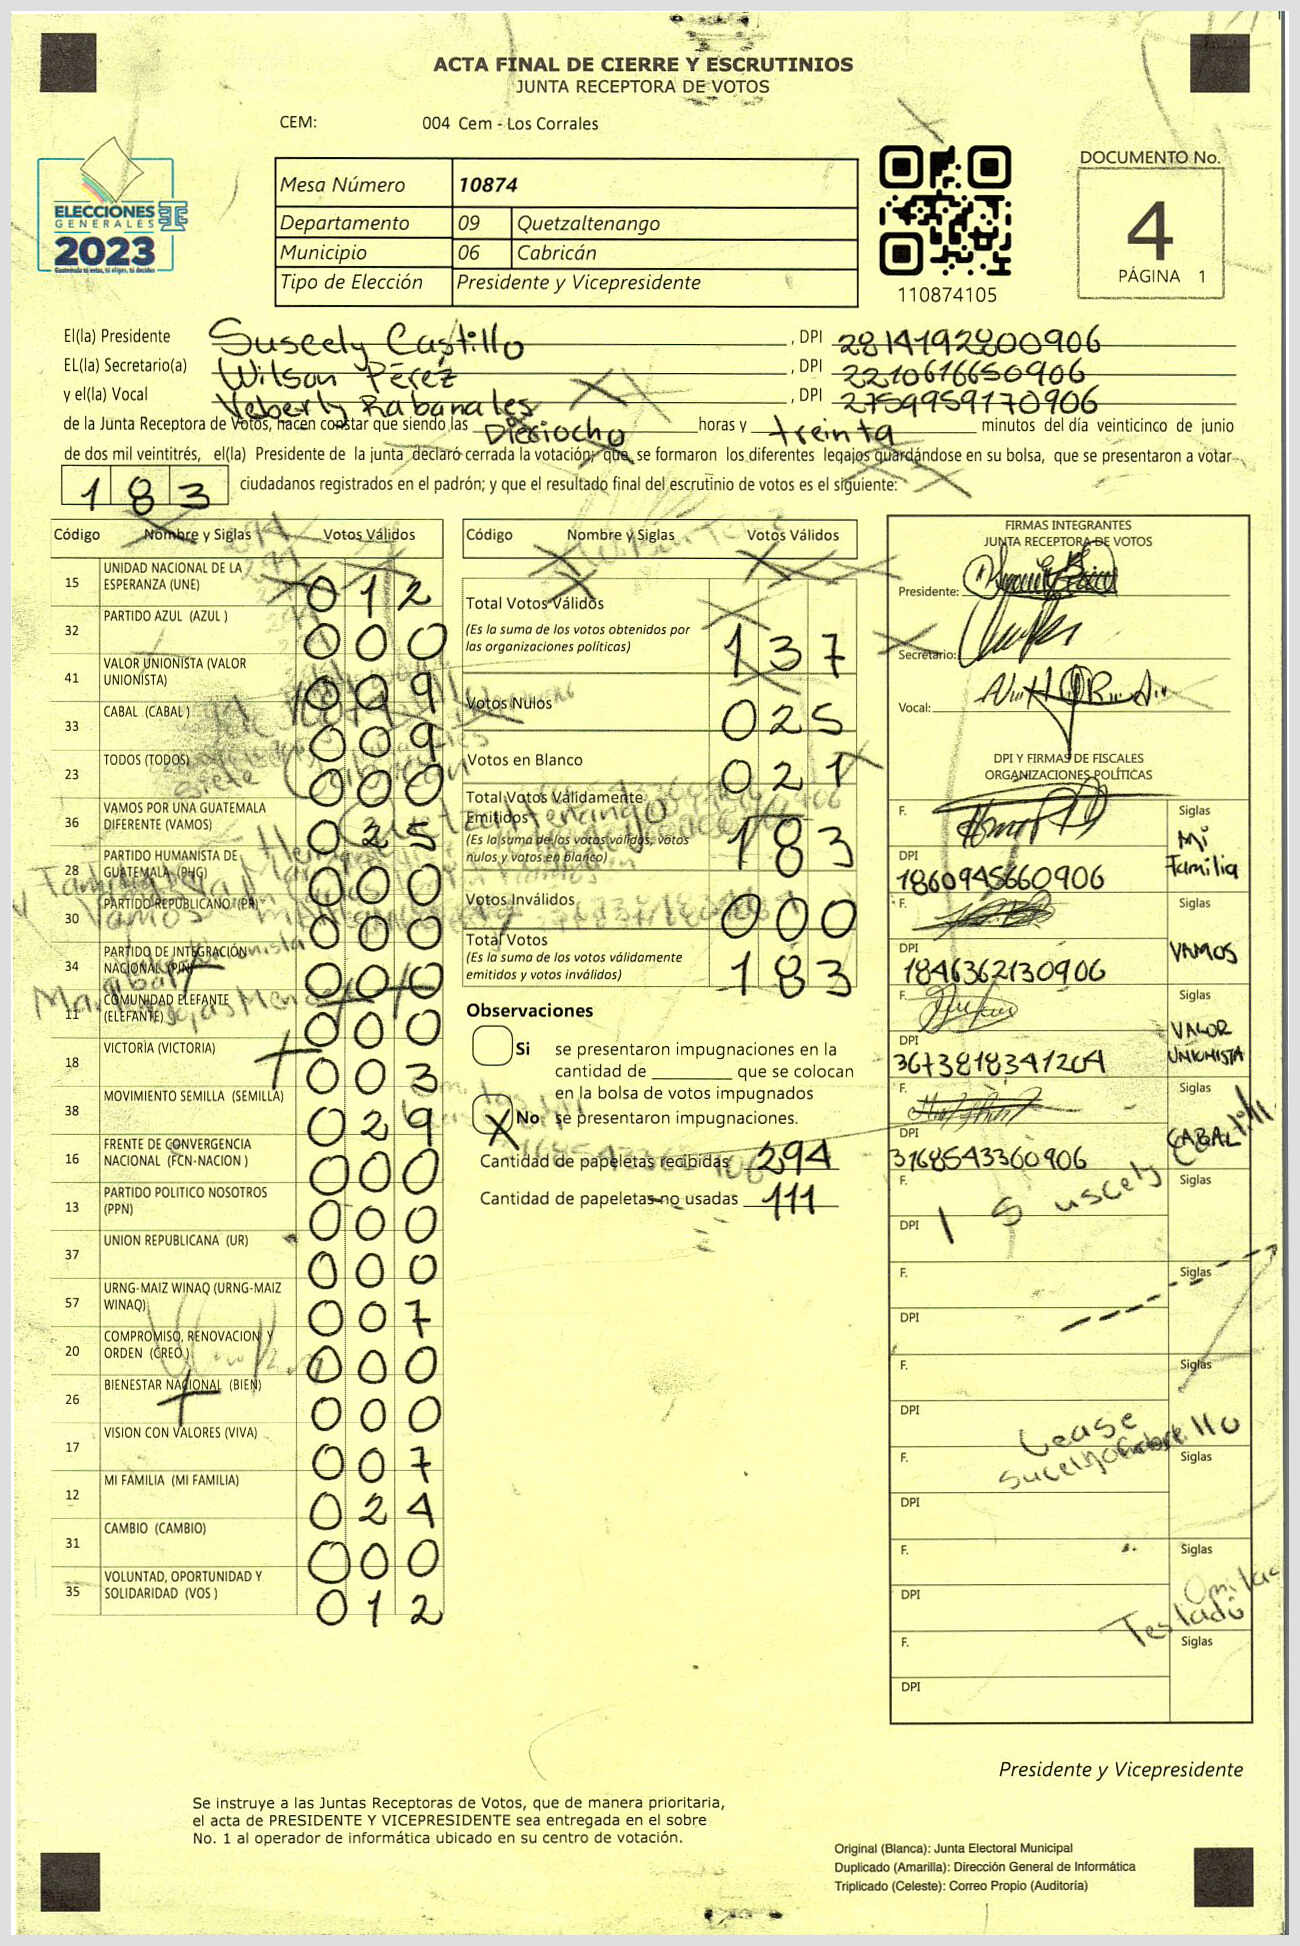 ACTA FINAL DE CIERRE Y ESCRUTINIOS
JUNTA RECEPTORA DE VOTOS
CEM: 004 Cem - Los Corrales
ELECCIONES
GENERALES
2023
Guatemala tú votas, tú eliges, tú decides
Mesa Número 10874
Departamento 09 Quetzaltenango
Municipio 06 Cabricán
Tipo de Elección Presidente y Vicepresidente
110874105
DOCUMENTO No.
4
PÁGINA 1
El(la) Presidente Suscely Castillo , DPI 2814192800906
EL(la) Secretario(a) Wilson Pérez , DPI 2210616650906
y el(la) Vocal Yeberly Rabanales , DPI 2759959170906
de la Junta Receptora de Votos, hacen constar que siendo las Dieciocho horas y treinta minutos del día veinticinco de junio
de dos mil veintitrés, el(la) Presidente de la junta declaró cerrada la votación; que se formaron los diferentes legajos guardándose en su bolsa, que se presentaron a votar
183 ciudadanos registrados en el padrón; y que el resultado final del escrutinio de votos es el siguiente:
Código Nombre y Siglas Votos Válidos
15 UNIDAD NACIONAL DE LA ESPERANZA (UNE) 012
32 PARTIDO AZUL (AZUL ) 000
41 VALOR UNIONISTA (VALOR UNIONISTA) 009
33 CABAL (CABAL ) 009
23 TODOS (TODOS) 000
36 VAMOS POR UNA GUATEMALA DIFERENTE (VAMOS) 025
28 PARTIDO HUMANISTA DE GUATEMALA (PHG) 000
30 PARTIDO REPUBLICANO (PR) 000
34 PARTIDO DE INTEGRACIÓN NACIONAL (PIN) 000
11 COMUNIDAD ELEFANTE (ELEFANTE) 000
18 VICTORIA (VICTORIA) 003
38 MOVIMIENTO SEMILLA (SEMILLA) 029
16 FRENTE DE CONVERGENCIA NACIONAL (FCN-NACION ) 000
13 PARTIDO POLITICO NOSOTROS (PPN) 000
37 UNION REPUBLICANA (UR) 000
57 URNG-MAIZ WINAQ (URNG-MAIZ WINAQ) 007
20 COMPROMISO, RENOVACION Y ORDEN (CREO ) 000
26 BIENESTAR NACIONAL (BIEN) 000
17 VISION CON VALORES (VIVA) 007
12 MI FAMILIA (MI FAMILIA) 024
31 CAMBIO (CAMBIO) 000
35 VOLUNTAD, OPORTUNIDAD Y SOLIDARIDAD (VOS ) 012
Código Nombre y Siglas Votos Válidos
Total Votos Válidos 137
(Es la suma de los votos obtenidos por
las organizaciones políticas)
Votos Nulos 025
Votos en Blanco 021
Total Votos Válidamente
Emitidos 183
(Es la suma de los votos válidos, votos
nulos y votos en blanco)
Votos Inválidos 000
Total Votos 183
(Es la suma de los votos válidamente
emitidos y votos inválidos)
Observaciones
Si se presentaron impugnaciones en la
cantidad de ________ que se colocan
en la bolsa de votos impugnados
X No se presentaron impugnaciones.
Cantidad de papeletas recibidas 294
Cantidad de papeletas no usadas 111
FIRMAS INTEGRANTES
JUNTA RECEPTORA DE VOTOS
Presidente:
Secretario:
Vocal:
DPI Y FIRMAS DE FISCALES
ORGANIZACIONES POLÍTICAS
F. Siglas Mi Familia
DPI 1860945660906
F. Siglas VAMOS
DPI 1846362130906
F. Siglas VALOR UNIONISTA
DPI 3673818341204
F. Siglas CABAL
DPI 3168543360906
F. Siglas
DPI
uscely
F. Siglas
DPI
F. Siglas
DPI
Lease
F. Siglas
DPI
F. Siglas
DPI
Testado
F. Siglas
DPI
Presidente y Vicepresidente
Se instruye a las Juntas Receptoras de Votos, que de manera prioritaria,
el acta de PRESIDENTE Y VICEPRESIDENTE sea entregada en el sobre
No. 1 al operador de informática ubicado en su centro de votación.
Original (Blanca): Junta Electoral Municipal
Duplicado (Amarilla): Dirección General de Informática
Triplicado (Celeste): Correo Propio (Auditoría)